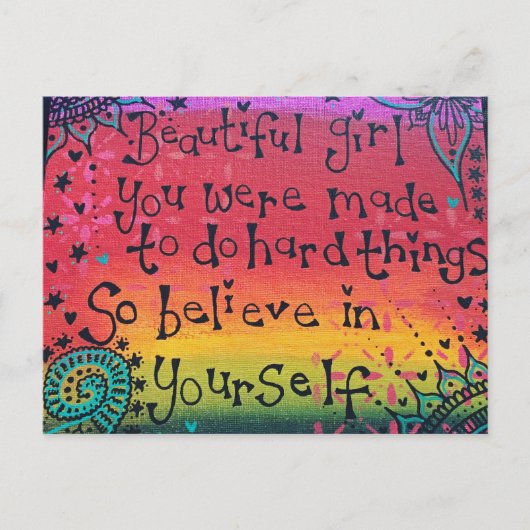 Beautiful girl
You were made
to do hard things
So believe in
Yourself